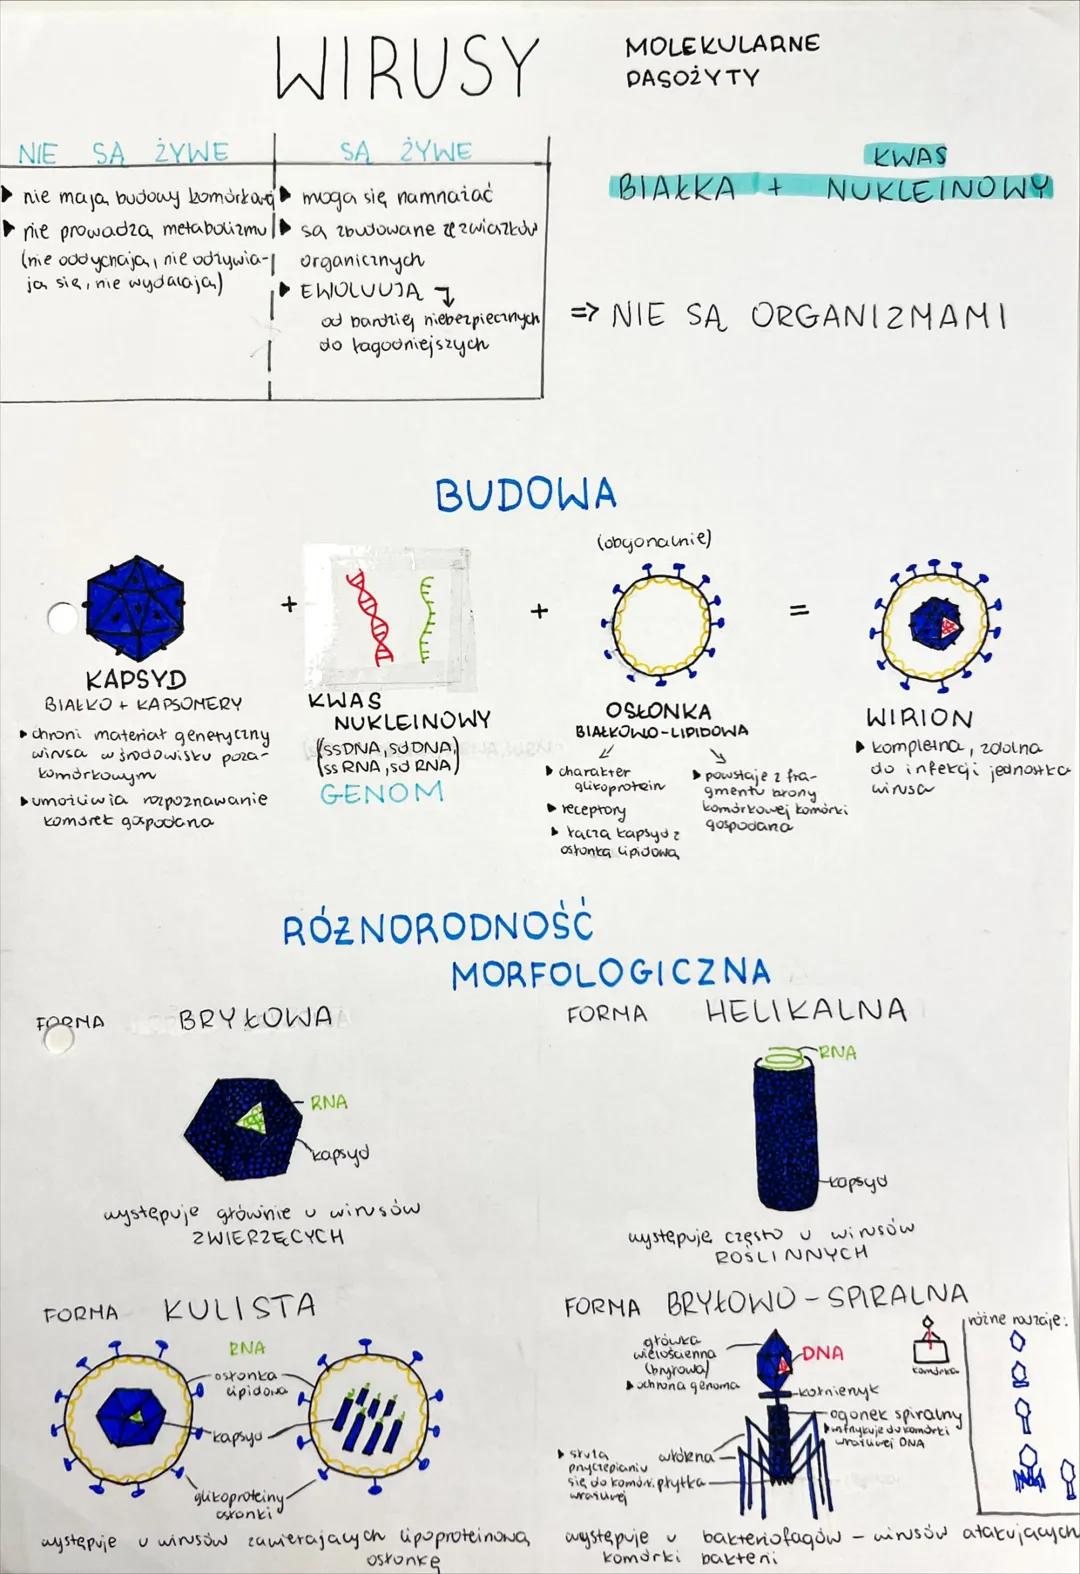 WIRUSY
MOLEKULARNE
PASOŻYTY
NIE SĄ ŻYWE
SĄ ŻYWE
▶ nie mają budowy komórkowej
▶ nie prowadzą metabolizmu
(nie oddychają, nie odżywia-
ją się, nie wydalają)
▶ mogą się namnażać
▶ są zbudowane ze związków
organicznych
▶ EWOLUUJĄ
od bardziej niebezpiecznych
do łagodniejszych
KWAS
BIAŁKA + NUKLEINOWY
=> NIE SĄ ORGANIZMAMI
BUDOWA
+
+
(opcjonalnie)
=
KAPSYD
BIAŁKO + KAPSOMERY
▶ chroni materiał genetyczny
wirusa w środowisku poza-
komórkowym
▶ umożliwia rozpoznawanie
komórek gospodarza
KWAS
NUKLEINOWY
(ssDNA, dsDNA,
ssRNA, dsRNA)
GENOM
OSŁONKA
BIAŁKOWO-LIPIDOWA
▶ charakter
glikoprotein
▶ receptory
▶ łączą kapsyd z
osłonką lipidową
▶ powstaje z fra-
gmentu błony
komórkowej komórki
gospodarza
WIRION
▶ kompletna, zdolna
do infekcji jednostka
wirusa
RÓŻNORODNOŚĆ
MORFOLOGICZNA
FORMA BRYŁOWA
RNA
kapsyd
występuje głównie u wirusów
ZWIERZĘCYCH
FORMA HELIKALNA
RNA
kapsyd
występuje często u wirusów
ROŚLINNYCH
FORMA KULISTA
RNA
osłonka
lipidowa
kapsyd
glikoproteiny
osłonki
występuje u wirusów zawierających lipoproteinową
osłonkę
FORMA BRYŁOWO-SPIRALNA
główka
wielościenna
(bryłowa)
▶ ochrona genomu
DNA
kołnierzyk
ogonek spiralny
▶ wnikuje do komórki
wrażliwej DNA
włókna
▶ służą
przyczepianiu
się do komór.
wrażliwej
płytka
komórka
różne rodzaje:
występuje u bakteriofagów - wirusów atakujących
komórki bakterii